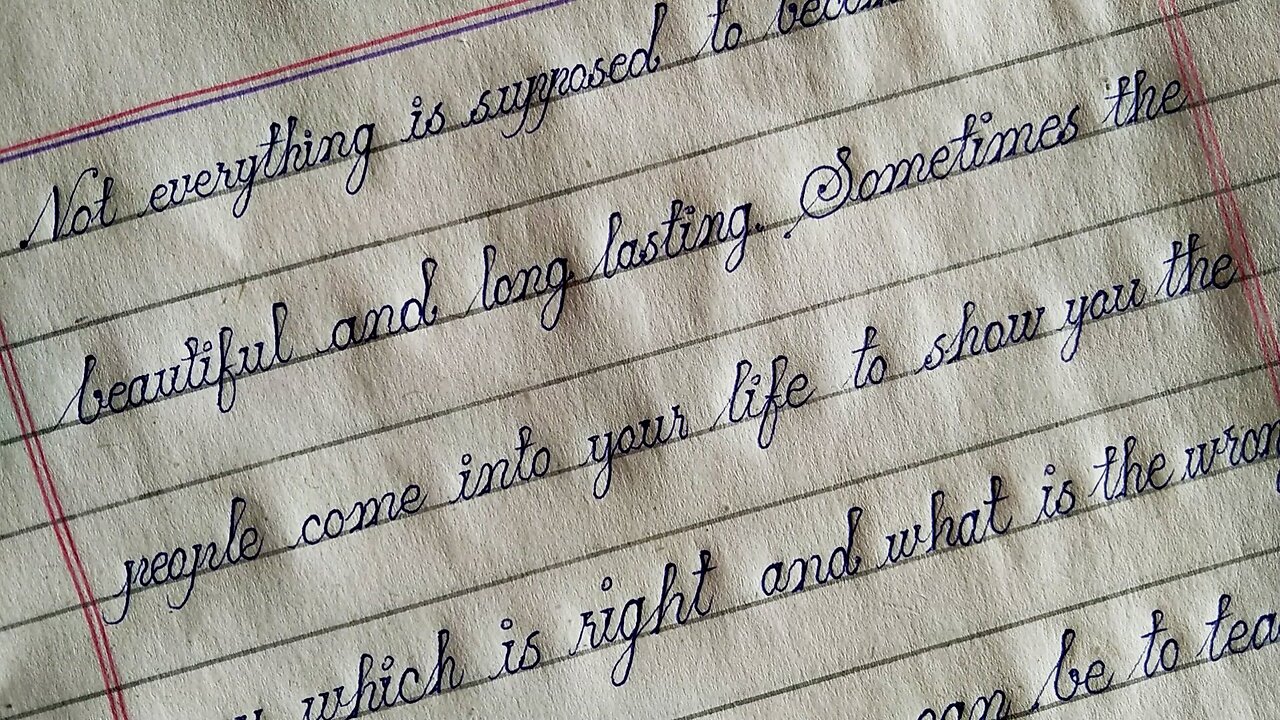 Not everything is supposed to
beautiful and long lasting. Sometimes the
people come into your life to show you the
which is right and what is the
can be to